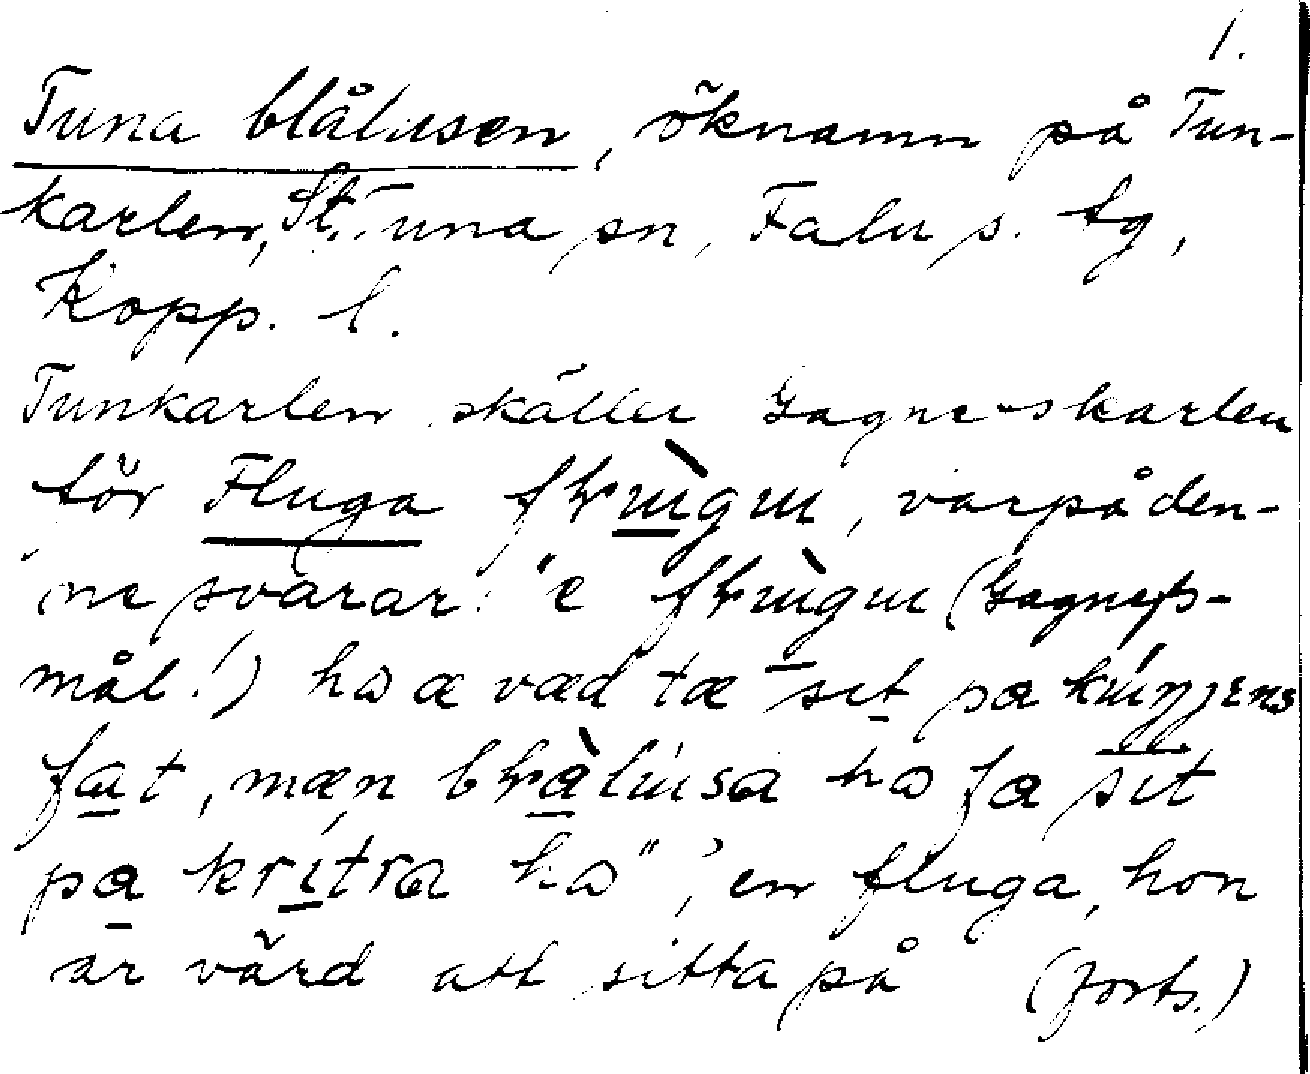 1.
Tuna blålusen, öknamn på Tun-
karlen, St. Tuna sn, Falu s. tg,
Kopp. l.
Tunkarlen skäller Gagneskarlen
för Fluga
, varpå den-
ne svarar: "e
(Gagnefs-
mål!) ha æ væd tæ sɩt pa
fat, mæn
ha fa sɩt
pa krítra ha", 'en fluga, hon
är värd att sitta på (forts.)